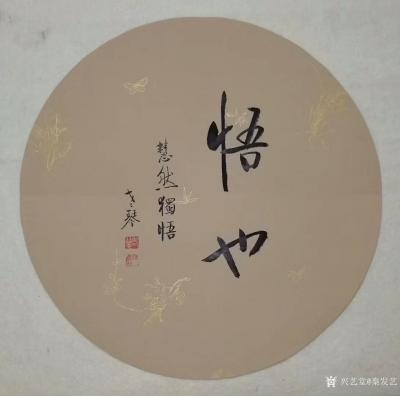 悟也
慧然獨悟
兴艺堂@秦发艺